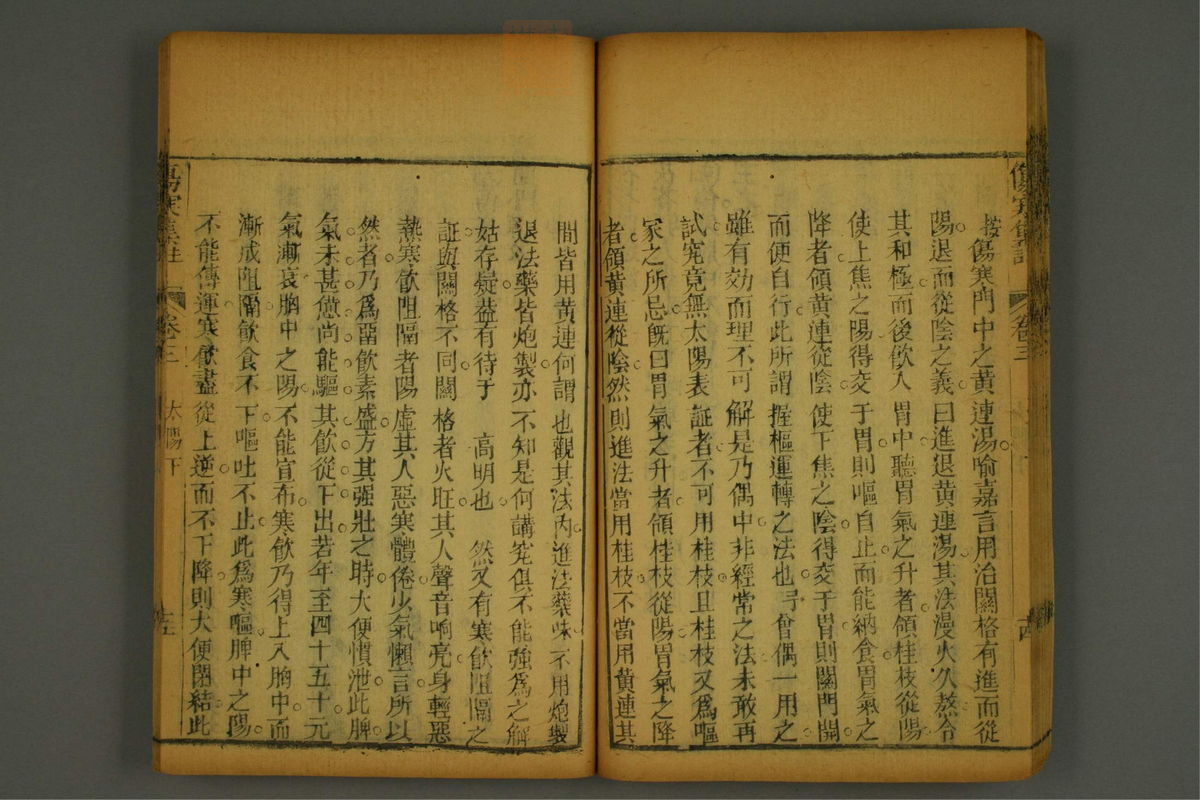 按傷寒門中之黃連湯喻嘉言用治關格有進而從
陽退而從陰之義曰進退黃連湯其法漫火久熬令
其和極而後飲人胃中聽胃氣之升者領桂枝從陽
使上焦之陽得交于胃則嘔自止而能納食胃氣之
降者領黃連從陰使下焦之陰得交于胃則關門開
而便自行此所謂握樞運轉之法也予曾偶一用之
雖有効而理不可解是乃偶中非經常之法未敢再
試究竟無太陽表証者不可用桂枝且桂枝又為嘔
家之所忌既曰胃氣之升者領桂枝從陽胃氣之降
者領黃連從陰然則進法當用桂枝不當用黃連其
間皆用黃連何謂也觀其法內進法藥味不用炮製
退法藥皆炮製亦不知是何講究俱不能強為之解
姑存疑葢有待于 高明也 然又有寒飲阻隔之
証與關格不同關格者火旺其人聲音响亮身輕惡
熱寒飲阻隔者陽虛其人惡寒體倦少氣懶言所以
然者乃為畱飲素盛方其强壯之時大便慣泄此脾
氣未甚憊尚能驅其飲從下出若年至四十五十元
氣漸衰胸中之陽不能宣布寒飲乃得上入胸中而
漸成阻隔飲食不下嘔吐不止此為寒嘔脾中之陽
不能傳運寒飲盡從上逆而不下降則大便閉結此
卷三
太陽下